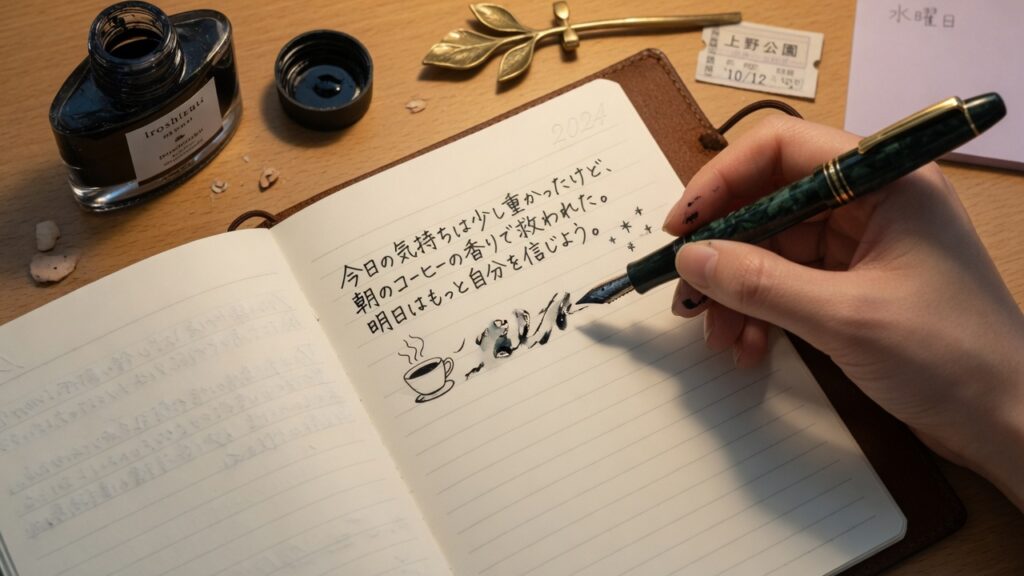 水曜日
上野公園
10/12
iroshizuku
2024
今日の気持ちは少し重かったけど、
朝のコーヒーの香りで救われた。
明日はもっと自分を信じよう。